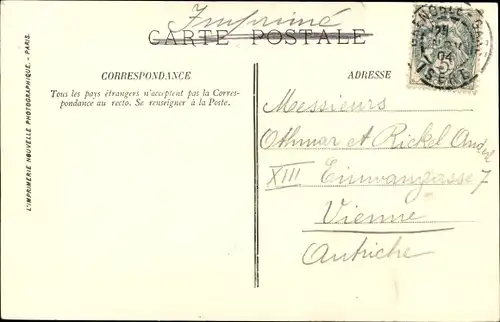 Imprimé
CARTE POSTALE
GRENOBLE-GARE
04
ISERE
CORRESPONDANCE
Tous les pays étrangers n'acceptent pas la Corres-
pondance au recto. Se renseigner à la Poste.
ADRESSE
Messieurs
Othmar et Rickel
XIII Einwangasse 7
Vienne
Autriche
L'IMPRIMERIE NOUVELLE PHOTOGRAPHIQUE. - PARIS.